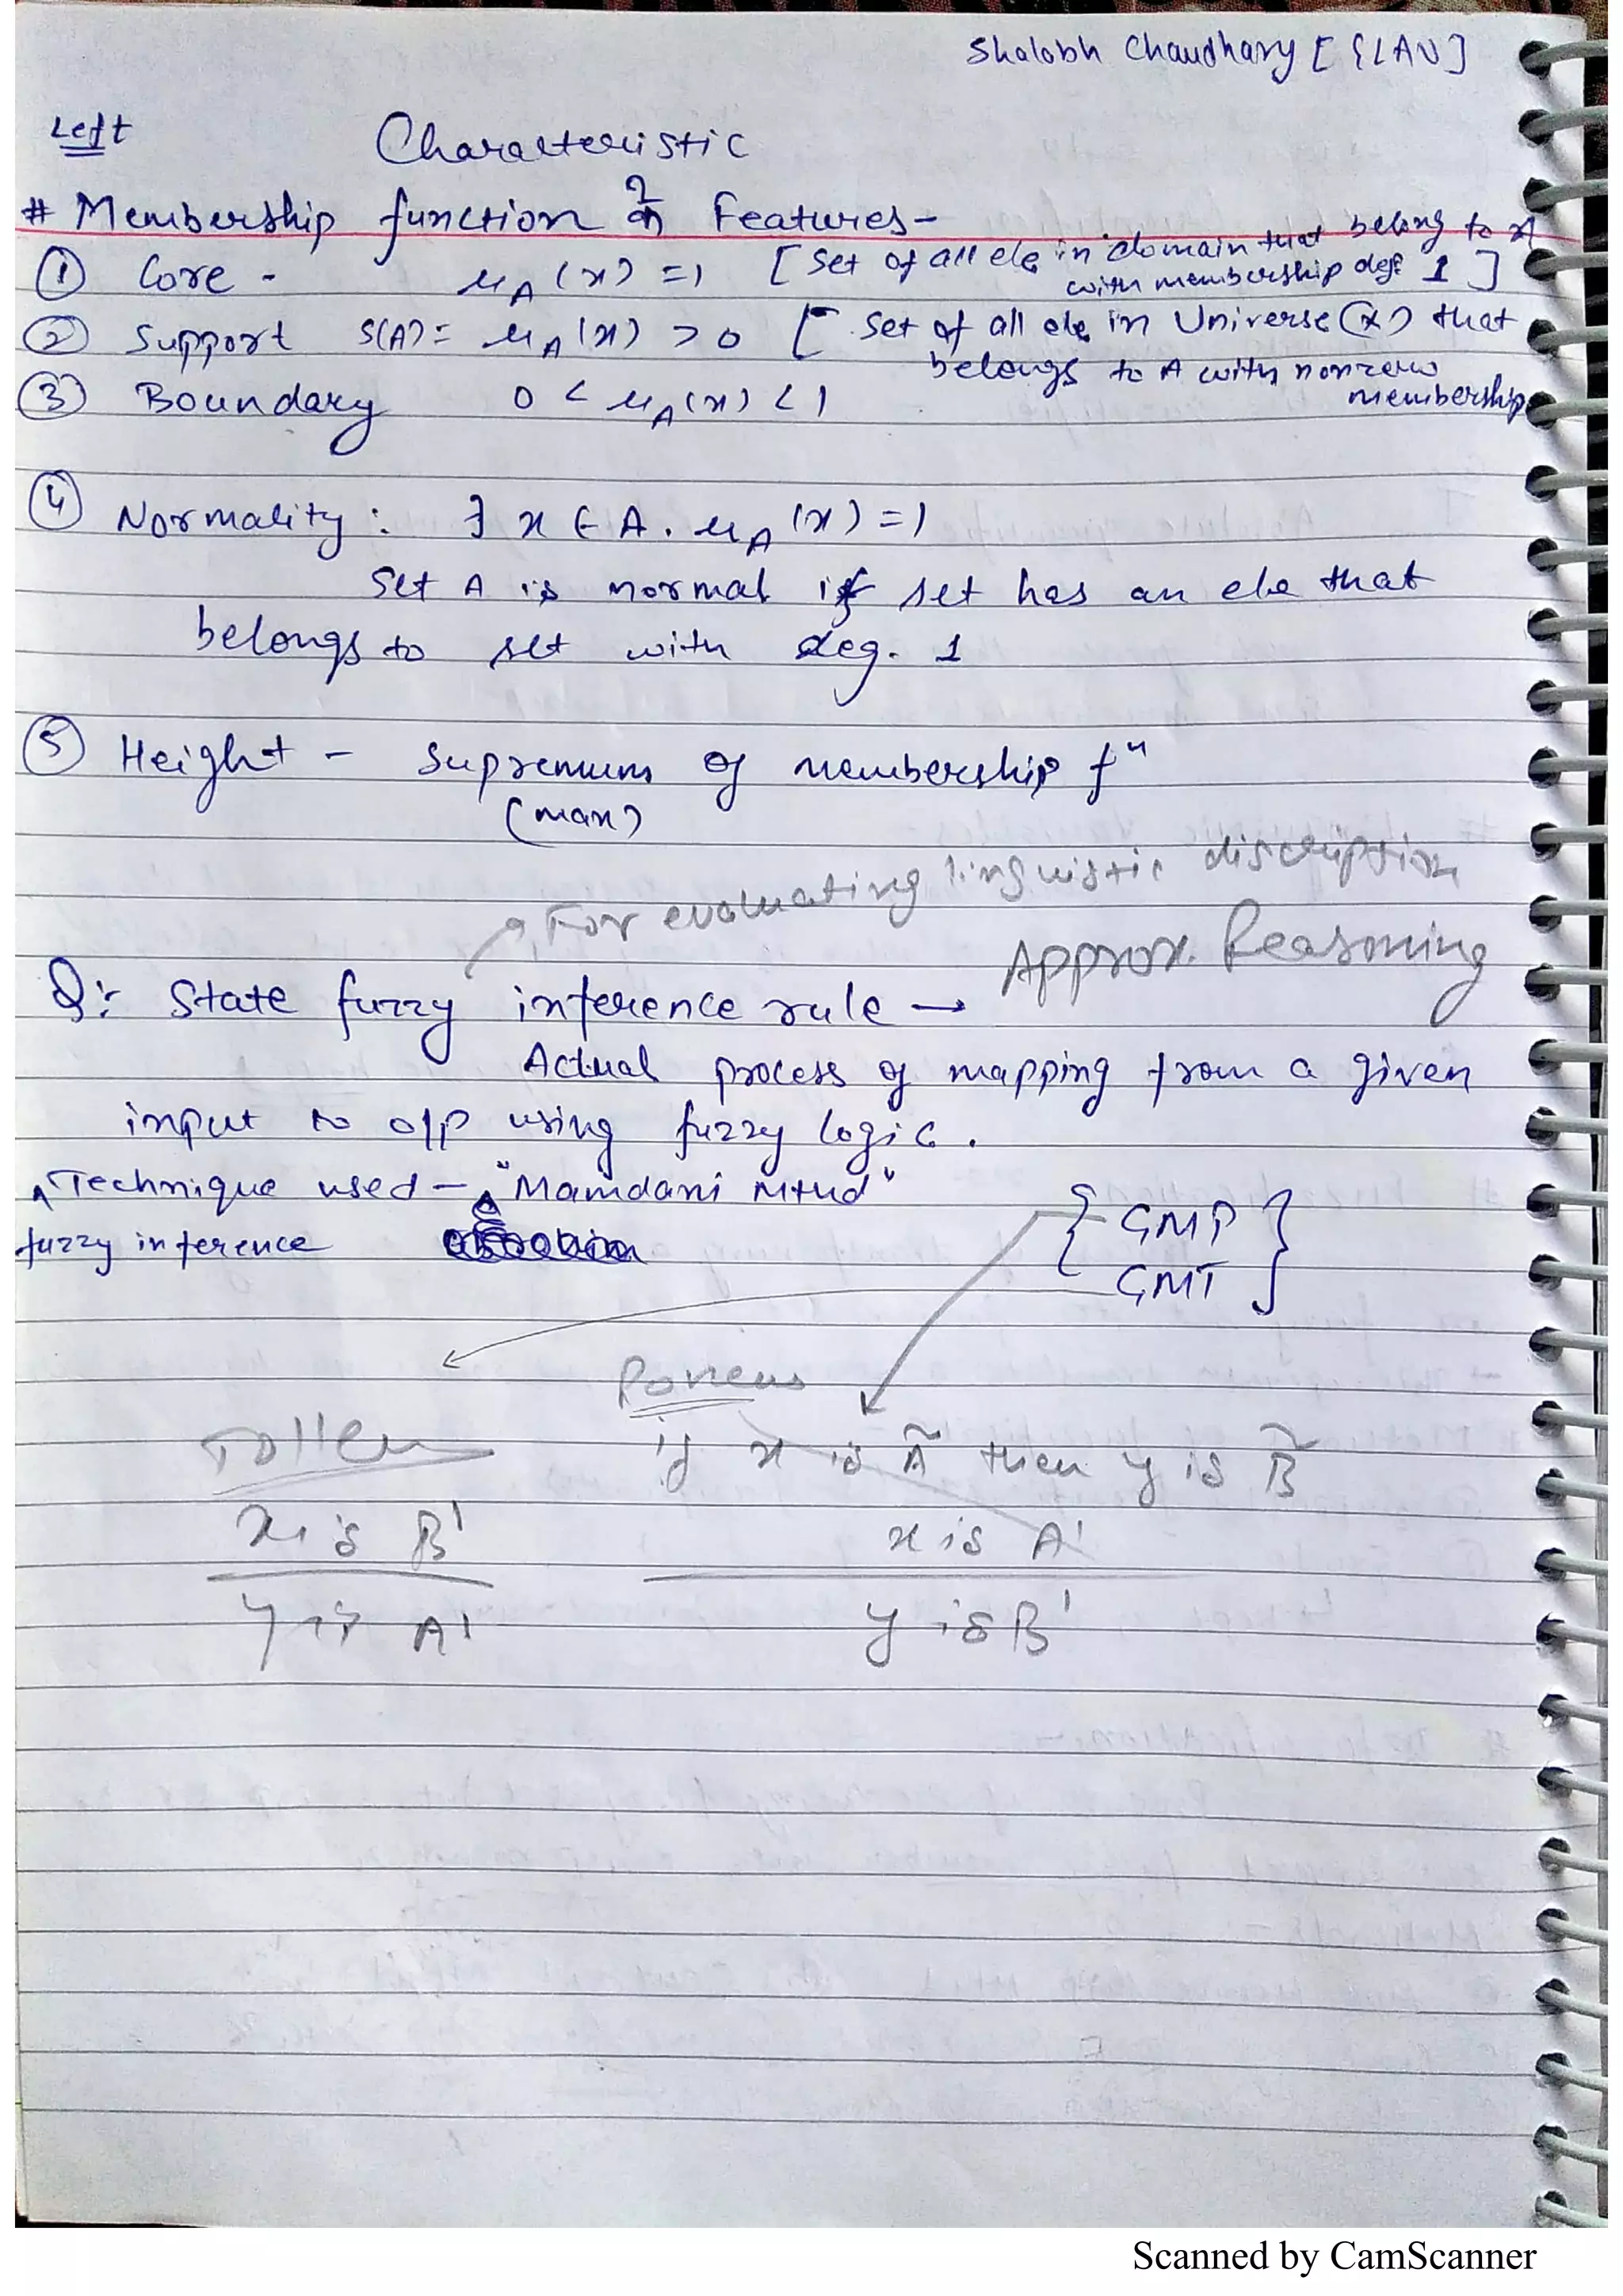 Shalobh Chaudhary [GLAU]
Left
Characteristic
# Membership function & Features-
① Core - μA(x) = 1 [Set of all ele in domain that belong to A
with membership deg 1]
② Support S(A) = μA(x) > 0 [Set of all ele in Universe (X) that
belongs to A with nonzero
membership
③ Boundary 0 < μA(x) < 1
④ Normality: ∃ x ∈ A. μA(x) = 1
Set A is normal if set has an ele that
belongs to set with deg. 1
⑤ Height - Supremum of membership fⁿ
(max)
For evaluating linguistic discription
Approx. Reasoning
Q:- State fuzzy inference rule →
Actual process of mapping from a given
input to o/p using fuzzy logic.
Technique used - "Mamdani Mthd"
fuzzy inference
{ GMP }
GMT
Ponens
Tollen
if x is Ã then y is B̃
x is B'
x is A'
y is A'
y is B'
Scanned by CamScanner